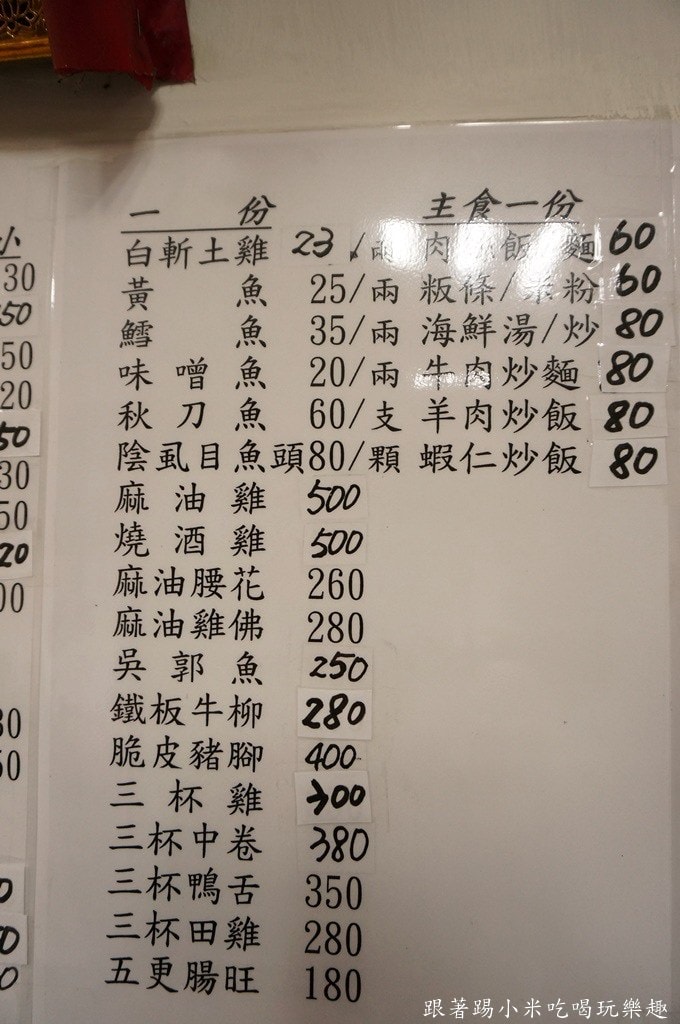 小
30
50
50
20
50
30
50
20
00
30
50
0
0
0
一 份
白斬土雞 23/兩
黃魚 25/兩
鱈魚 35/兩
味噌魚 20/兩
秋刀魚 60/支
陰虱目魚頭 80/顆
麻油雞 500
燒酒雞 500
麻油腰花 260
麻油雞佛 280
吳郭魚 250
鐵板牛柳 280
脆皮豬腳 400
三杯雞 300
三杯中卷 380
三杯鴨舌 350
三杯田雞 280
五更腸旺 180
主食一份
肉 飯 麵 60
粄條/米粉 60
海鮮湯/炒 80
牛肉炒麵 80
羊肉炒飯 80
蝦仁炒飯 80
跟著踢小米吃喝玩樂趣